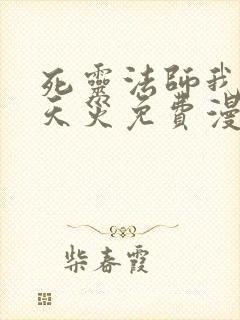 死靈法師我
天災免費漫
柴春霞